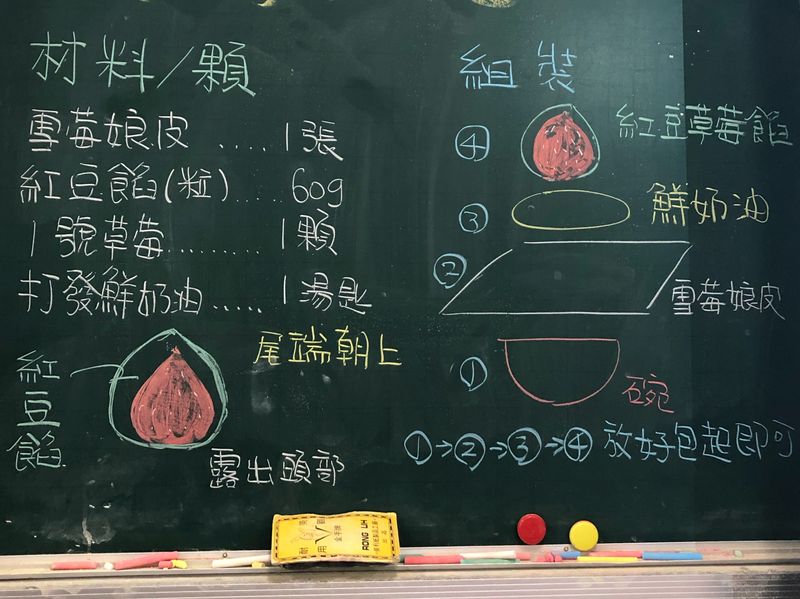 材料/顆
雪莓娘皮 ..... 1張
紅豆餡(粒) ..... 60g
1號草莓 ......... 1顆
打發鮮奶油 ..... 1湯匙
紅豆餡
尾端朝上
露出頭部
組裝
④ 紅豆草莓餡
③ 鮮奶油
② 雪莓娘皮
① 碗
①→②→③→④ 放好包起即可
RONG LIH